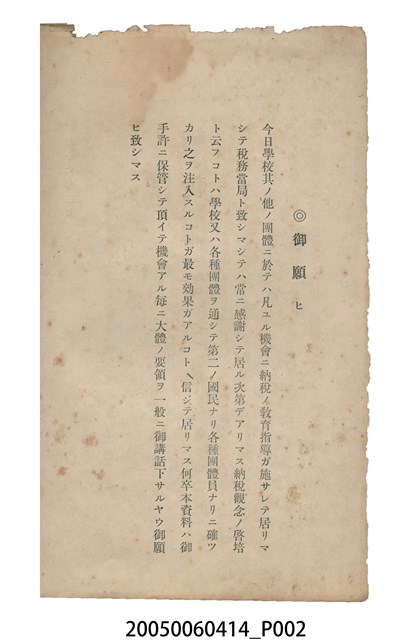 ◎御願ヒ
今日學校其ノ他ノ團體ニ於テハ凡ユル機會ニ納稅ノ敎育指導ガ施サレテ居リマ
シテ稅務當局ト致シマシテハ常ニ感謝シテ居ル次第デアリマス納稅觀念ノ啓培
ト云フコトハ學校又ハ各種團體ヲ通シテ第二ノ國民ナリ各種團體員ナリニ確ツ
カリ之ヲ注入スルコトガ最モ効果ガアルコトヽ信ジテ居リマス何卒本資料ハ御
手許ニ保管シテ頂イテ機會アル每ニ大體ノ要領ヲ一般ニ御講話下サルヤウ御願
ヒ致シマス
20050060414_P002